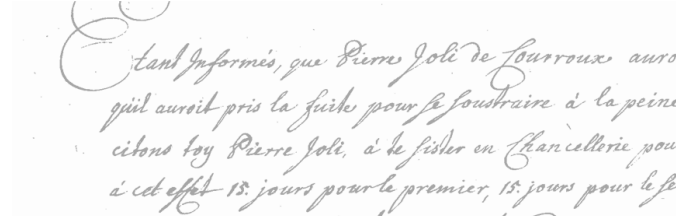 Etant Informés, que Pierre Joli de Courroux auro
qu'il auroit pris la fuite pour se soustraire à la peine
citons toy Pierre Joli, à te sister en Chancellerie pou
à cet effet 15. jours pour le premier, 15. jours pour le se